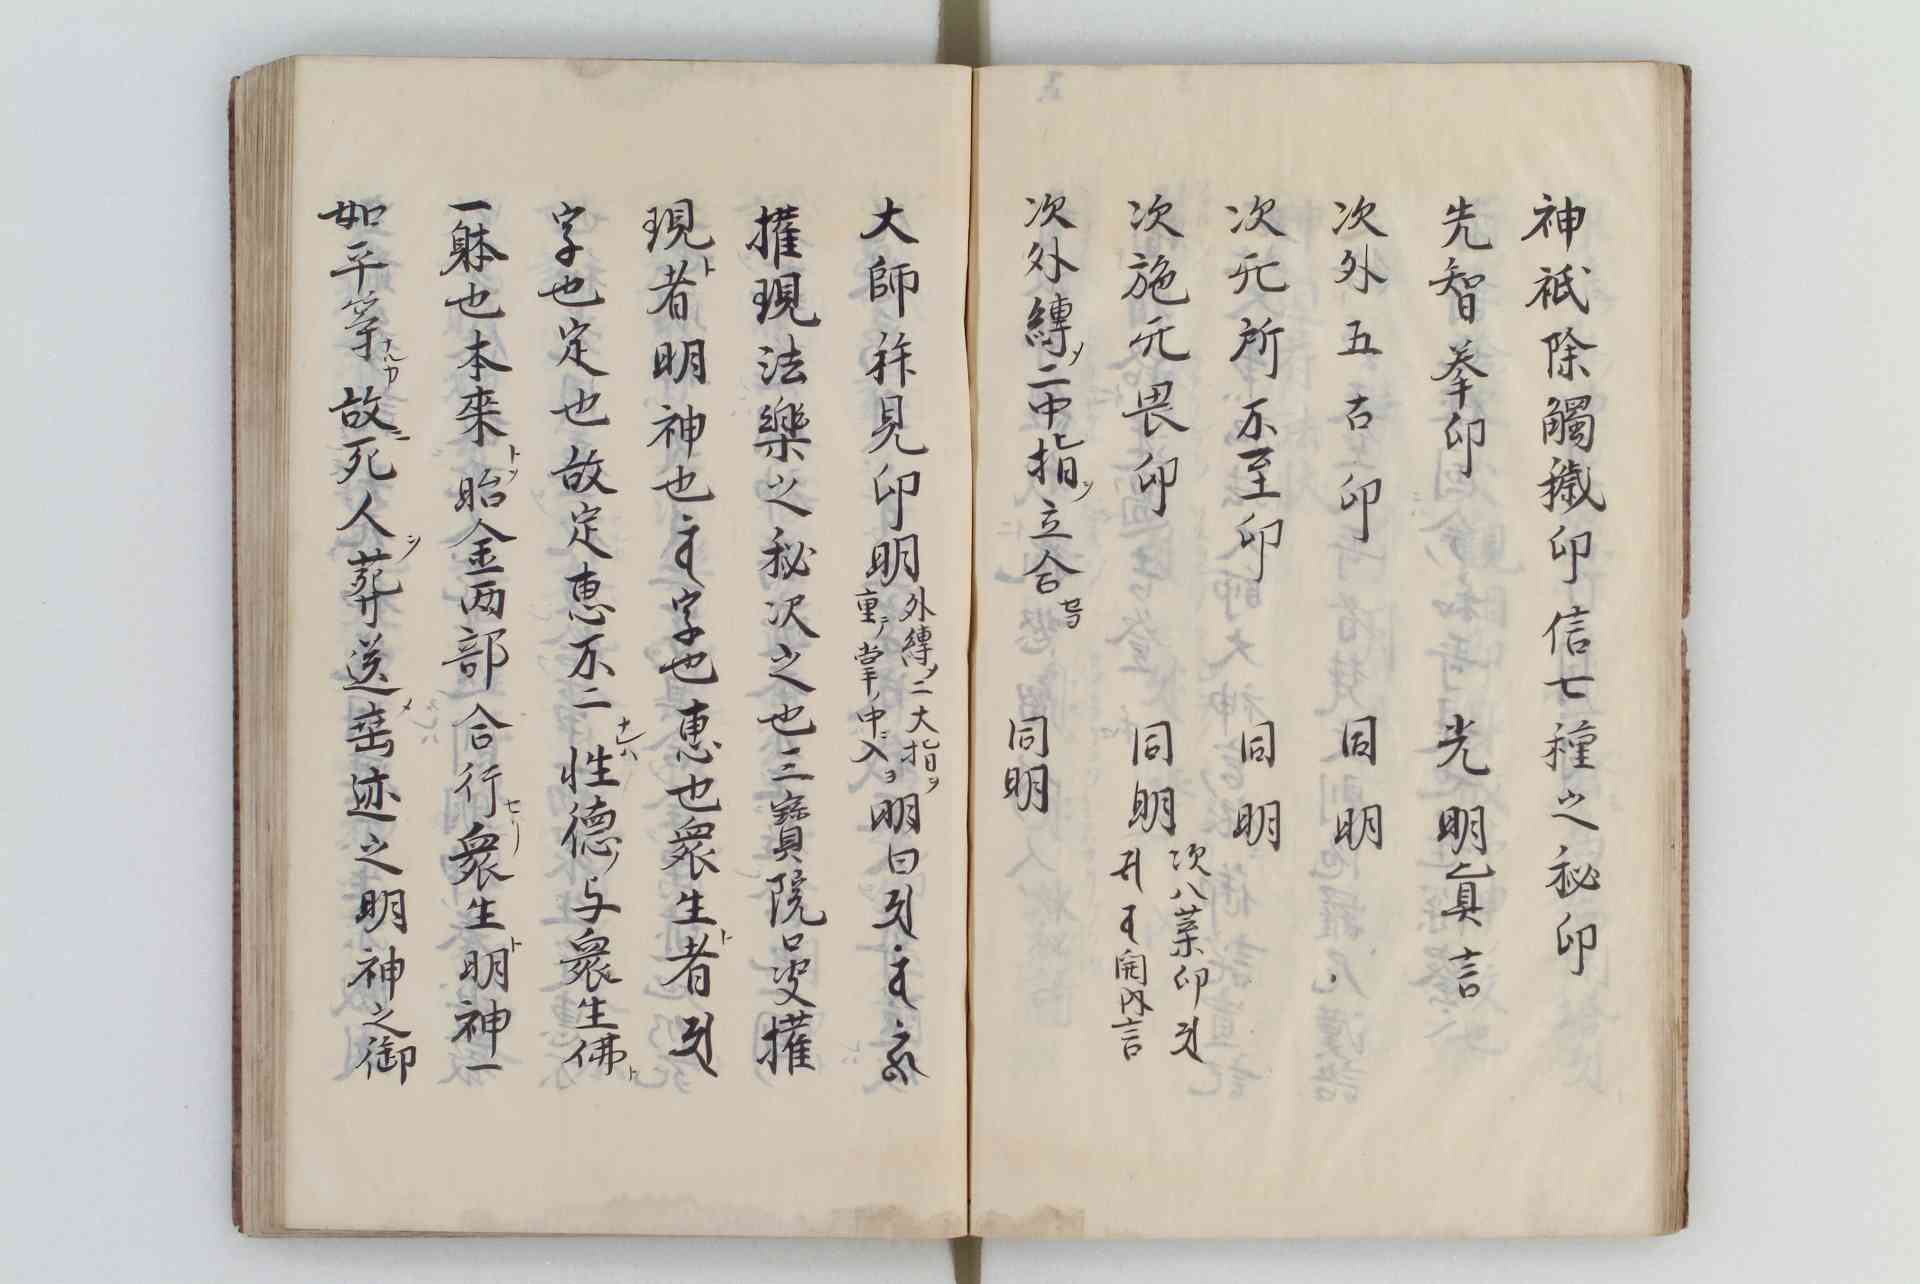 神祇除觸穢印信七種之秘印
先智拳印　光明真言
次外五古印　同明
次无所不至印　同明
次施无畏印　同明　次八葉印 開内言
次外縛ヲ二中指ヲ立合セヨ　同明
大師拜見印明 外縛ヲ二大指ヲ重テ掌ノ中ニ入ヨ 明曰
權現法樂之秘次之也三寳院口决權
現ト者明神也 字也惠也衆生ト者
字也定也故定惠不二ナレハ性德ノ与衆生佛ト
一躰也本来トシ胎金两部合行セリ衆生ト明神一
如平等ナルカ故ニ死人ヲ葬送メ垂迹之明神之御